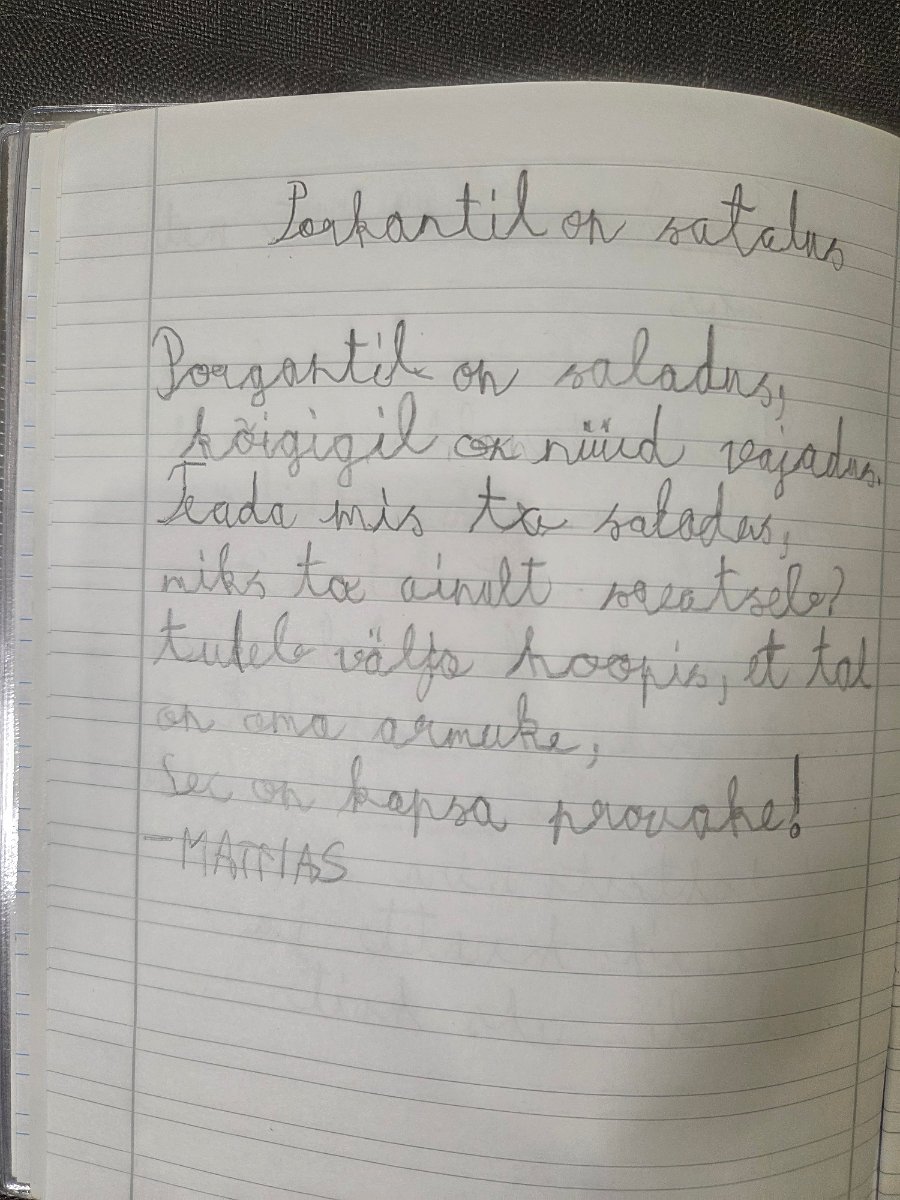 Porkantil on satalus
Porgantil on saladus,
kõigigil on nüüd vajadus.
Teada mis ta saladus,
miks ta ainult sosatsele?
tuleb välja hoopis, et tal
on oma armuke,
See on kapsa prouake!
-MATTIAS